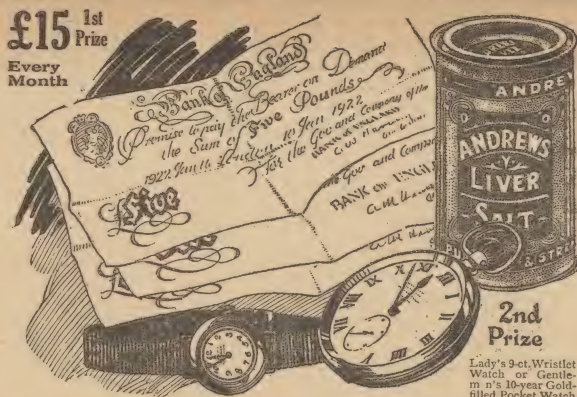 £15 1st
Prize
Every
Month
Bank of England
Promise to pay the Bearer on Demand
the Sum of Five Pounds
1922 Jan 10 London 10 Jan 1922
For the Gov and Company of the
BANK of ENGLAND
Five
Gov and Compa
BANK OF ENGL
ANDREW
ANDREWS
LIVER
SALT
& STRO
2nd
Prize
Lady's 9-ct. Wristlet
Watch or Gentle-
m n's 10-year Gold-
filled Pocket Watch